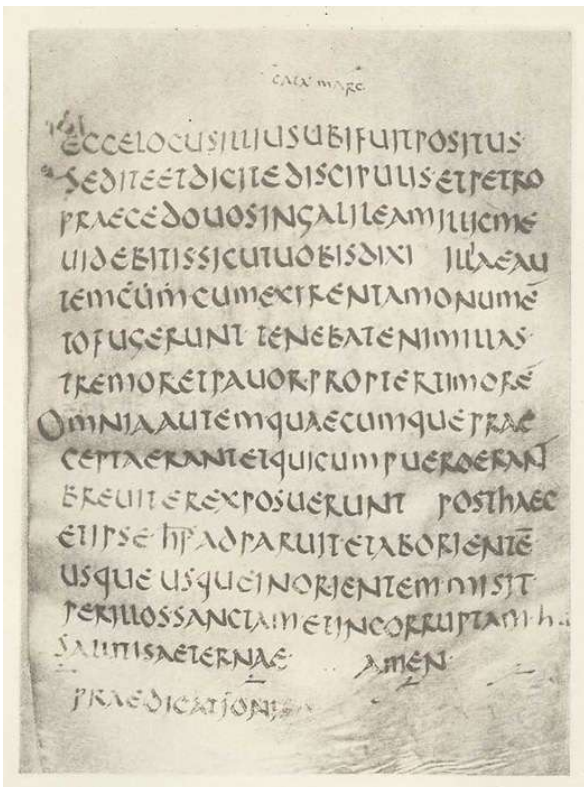 CATA MARC
ECCELOCUSILLIUSUBIFUITPOSITUS
SEDITEETDICITEDISCIPULIS·ETPETRO
PRAECEDOUOSINGALILEAMILLICME
UIDEBITISSICUTUOBISDIXI ILLAEAU
TEMCUMCUMEXIRENTAMONUMĒ
TOFUGERUNT TENEBATENIMILLAS
TREMORETPAUORPROPTERTIMORĒ
OMNIAAUTEMQUAECUMQUEPRAE
CEPTAERANTETQUICUMPUEROERANT
BREUITEREXPOSUERUNT POSTHAEC
ETIPSE hP̅ ADPARUITETABORIENTĒ
USQUE USQUEINORIENTEMMISIT
PERILLOSSANCTAMETINCORRUPTAM·h
SALUTISAETERNAE AMEN
PRAEDICATIONIS